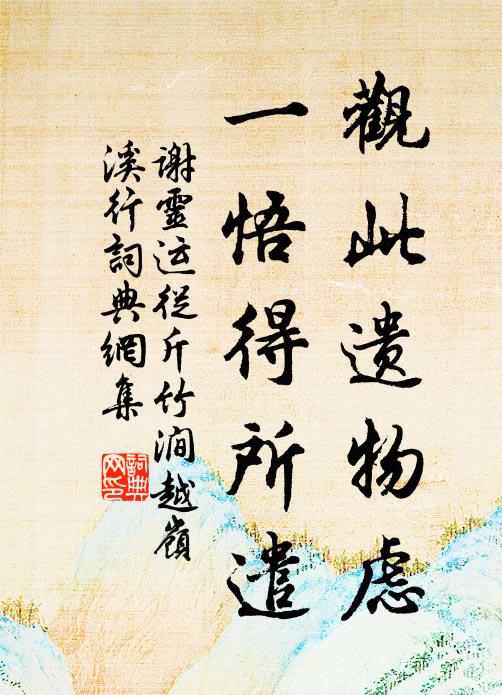 觀此遗物虑
一悟得所遣
謝靈运從斤竹澗越嶺
溪行詞典網集
詞典
网印